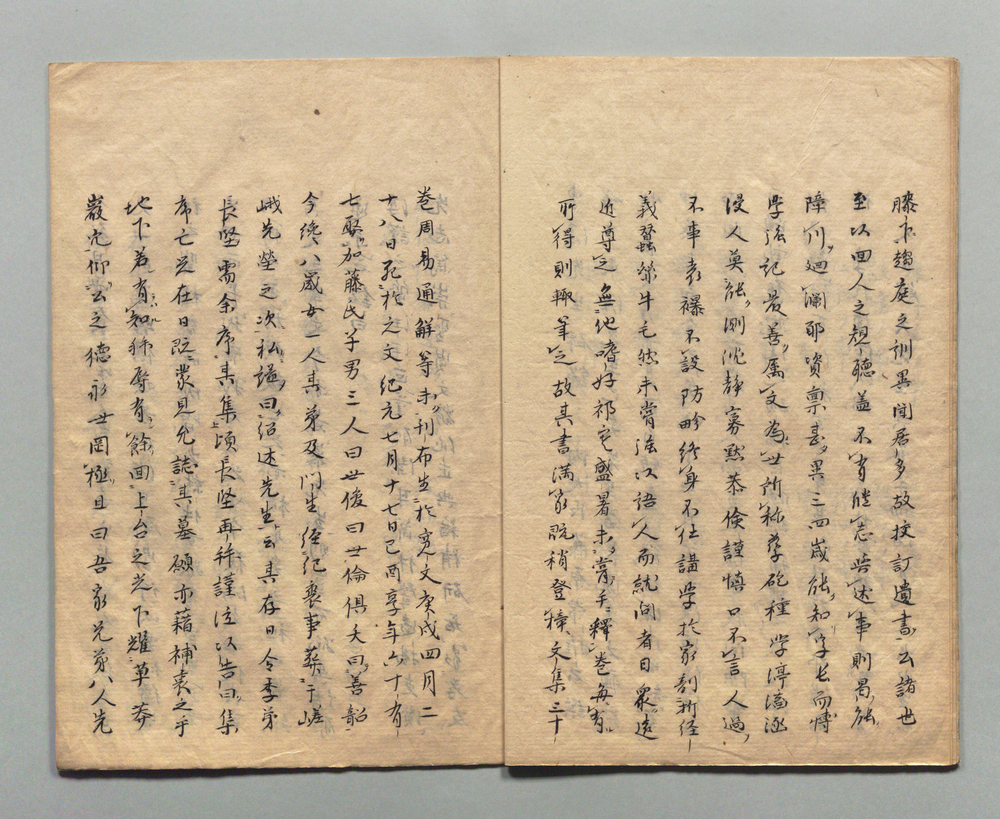 膝下趨庭之訓異聞居多故挍訂遺書公諸世
至以回人之視聽蓋不有繼志述事則曷能
障川廻瀾耶資稟甚異三四歲能知字長而博
学強記最善属文為世所称孳矻種学渟滀涵
浸人莫能測沈静寡默恭倹謹慎口不言人過
不事表襮不設防畛終身不仕講学於家剖析経
義蠶絲牛毛然未嘗強以語人而就問者日衆遠
近尊之無他嗜好祁寒盛暑未嘗手釋巻毎有
所得則輒筆之故其書満家既稍登梓文集三十
巻周易通解等未刊布生於寛文庚戌四月二
十八日死於元文紀元七月十七日己酉享年六十有
七娶加藤氏子男三人曰世俊曰世倫倶夭曰善韶
今纔八歲女一人其弟及門生經紀喪事葬于嵯
峨先塋之次私諡曰紹述先生云其存日令季弟
長堅需余序其集頃長堅再拜謹泣以告曰集
序亡兄在日既蒙見允誌其墓願亦藉補袞之手
地下若有知拜辱有餘面上台之光下耀草莽
巖穴仰公之徳永世罔極且曰吾家兄弟八人先